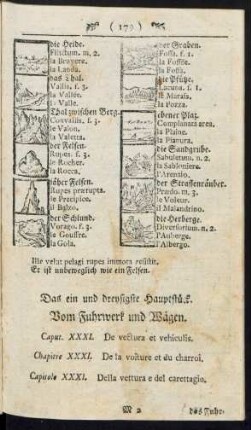 ( 179 )
die Heide.
Filictum. n. 2.
la Bruyere.
la Landa.
das Thal.
Vallis, f. 3.
la Vallée.
la Valle.
Thal zwischen Berg.
Convallis, f. 3.
le Valon.
la Valetta.
der Felsen.
Rupes. f. 3.
le Rocher.
la Rocca.
jäher Felsen.
Rupes prærupta.
le Precipice.
il Balzo.
der Schlund.
Vorago. f. 3.
le Gouffre.
la Gola.
der Graben.
Fossa. f. 1.
la Fosse.
la Fossa.
die Pfütze.
Lacuna. f. 1.
le Marais.
la Pozza.
ebener Platz.
Complanata area.
la Plaine.
la Pianura.
die Sandgrube.
Sabuletum. n. 2.
la Sabloniere.
l'Arenario.
der Strassenräuber.
Prædo. m. 3.
le Voleur.
il Malandrino.
die Herberge.
Diversorium. n. 2.
l'Auberge.
l'Albergo.
Ille velut pelagi rupes immota resistit.
Er ist unbeweglich wie ein Felsen.
Das ein und dreysigste Hauptstück.
Vom Fuhrwerk und Wägen.
Caput. XXXI. De vectura et vehiculis.
Chapitre XXXI. De la voiture et du charroi.
Capitolo XXXI. Della vettura e del carettagio.
M 2
das Fuhr-